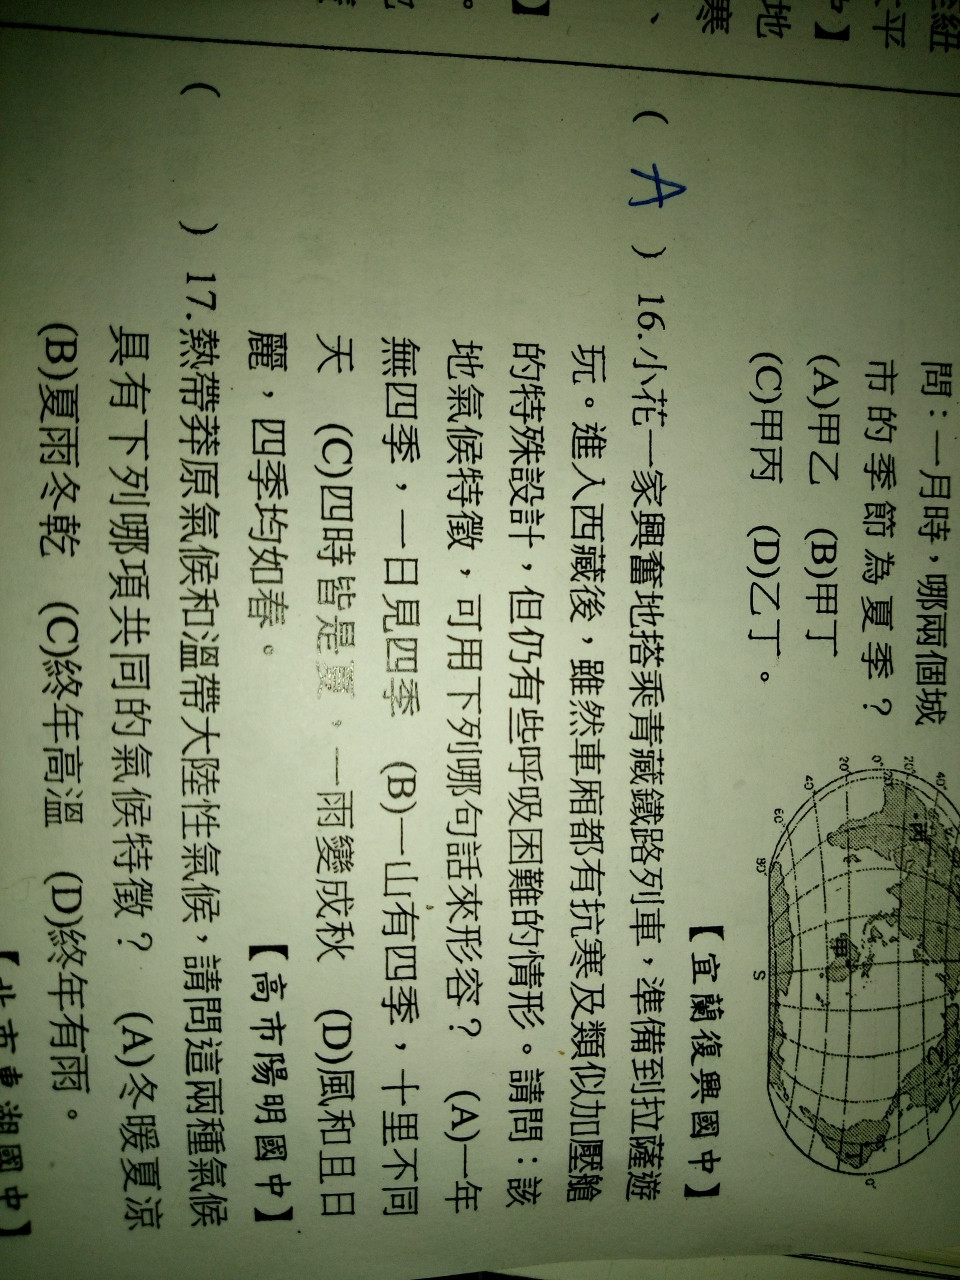 問：一月時，哪兩個城
市的季節為夏季？
(A)甲乙　(B)甲丁
(C)甲丙　(D)乙丁　。
【宜蘭復興國中】
( A ) 16.小花一家興奮地搭乘青藏鐵路列車，準備到拉薩遊
玩。進入西藏後，雖然車廂都有抗寒及類似加壓艙
的特殊設計，但仍有些呼吸困難的情形。請問：該
地氣候特徵，可用下列哪句話來形容？　(A)一年
無四季，一日見四季　(B)一山有四季，十里不同
天　(C)四時皆是夏，一雨變成秋　(D)風和且日
麗，四季均如春。　【高市陽明國中】
(　) 17.熱帶莽原氣候和溫帶大陸性氣候，請問這兩種氣候
具有下列哪項共同的氣候特徵？　(A)冬暖夏涼
(B)夏雨冬乾　(C)終年高溫　(D)終年有雨。
【北市東湖國中】